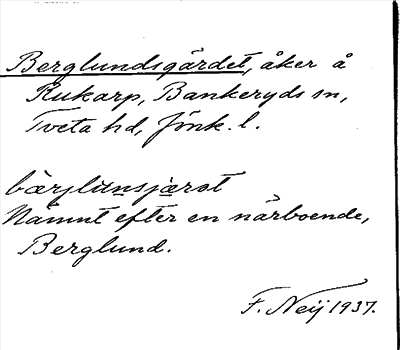 Berglundsgärdet, åker å
Rukarp, Bankeryds sn,
Tveta hd, Jönk. l.
bærjlunsjærɔt
Namnt efter en närboende,
Berglund.
F. Neij 1937.